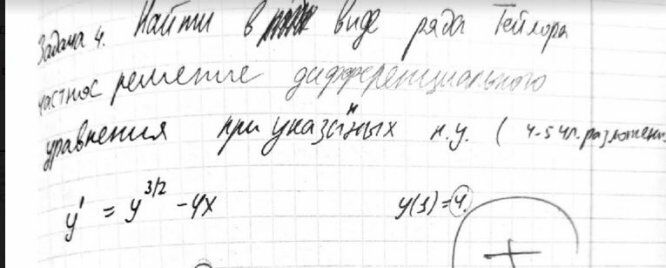 Задача 4. Найти в виде ряда Тейлора
частное решение дифференциального
уравнения при указанных н.у. ( 4-5 чл. разложения
y' = y^{3/2} - 4x y(1) = 4.
+